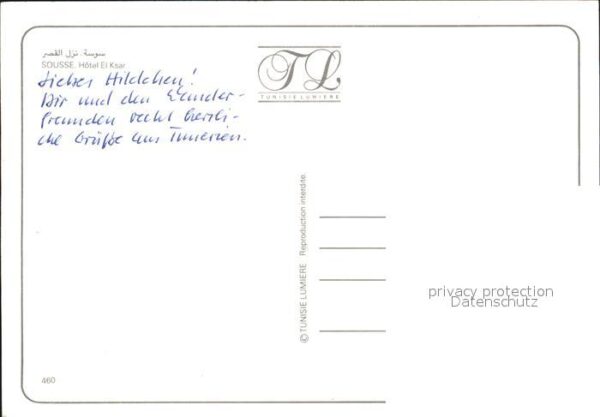 سوسة. نزل القصر
SOUSSE. Hôtel El Ksar
TL
TUNISIE LUMIERE
Liebes Hildchen!
Dir und den Wander-
freunden recht herzli-
che Grüße aus Tunesien.
© TUNISIE LUMIERE Reproduction interdite.
privacy protection
Datenschutz
460